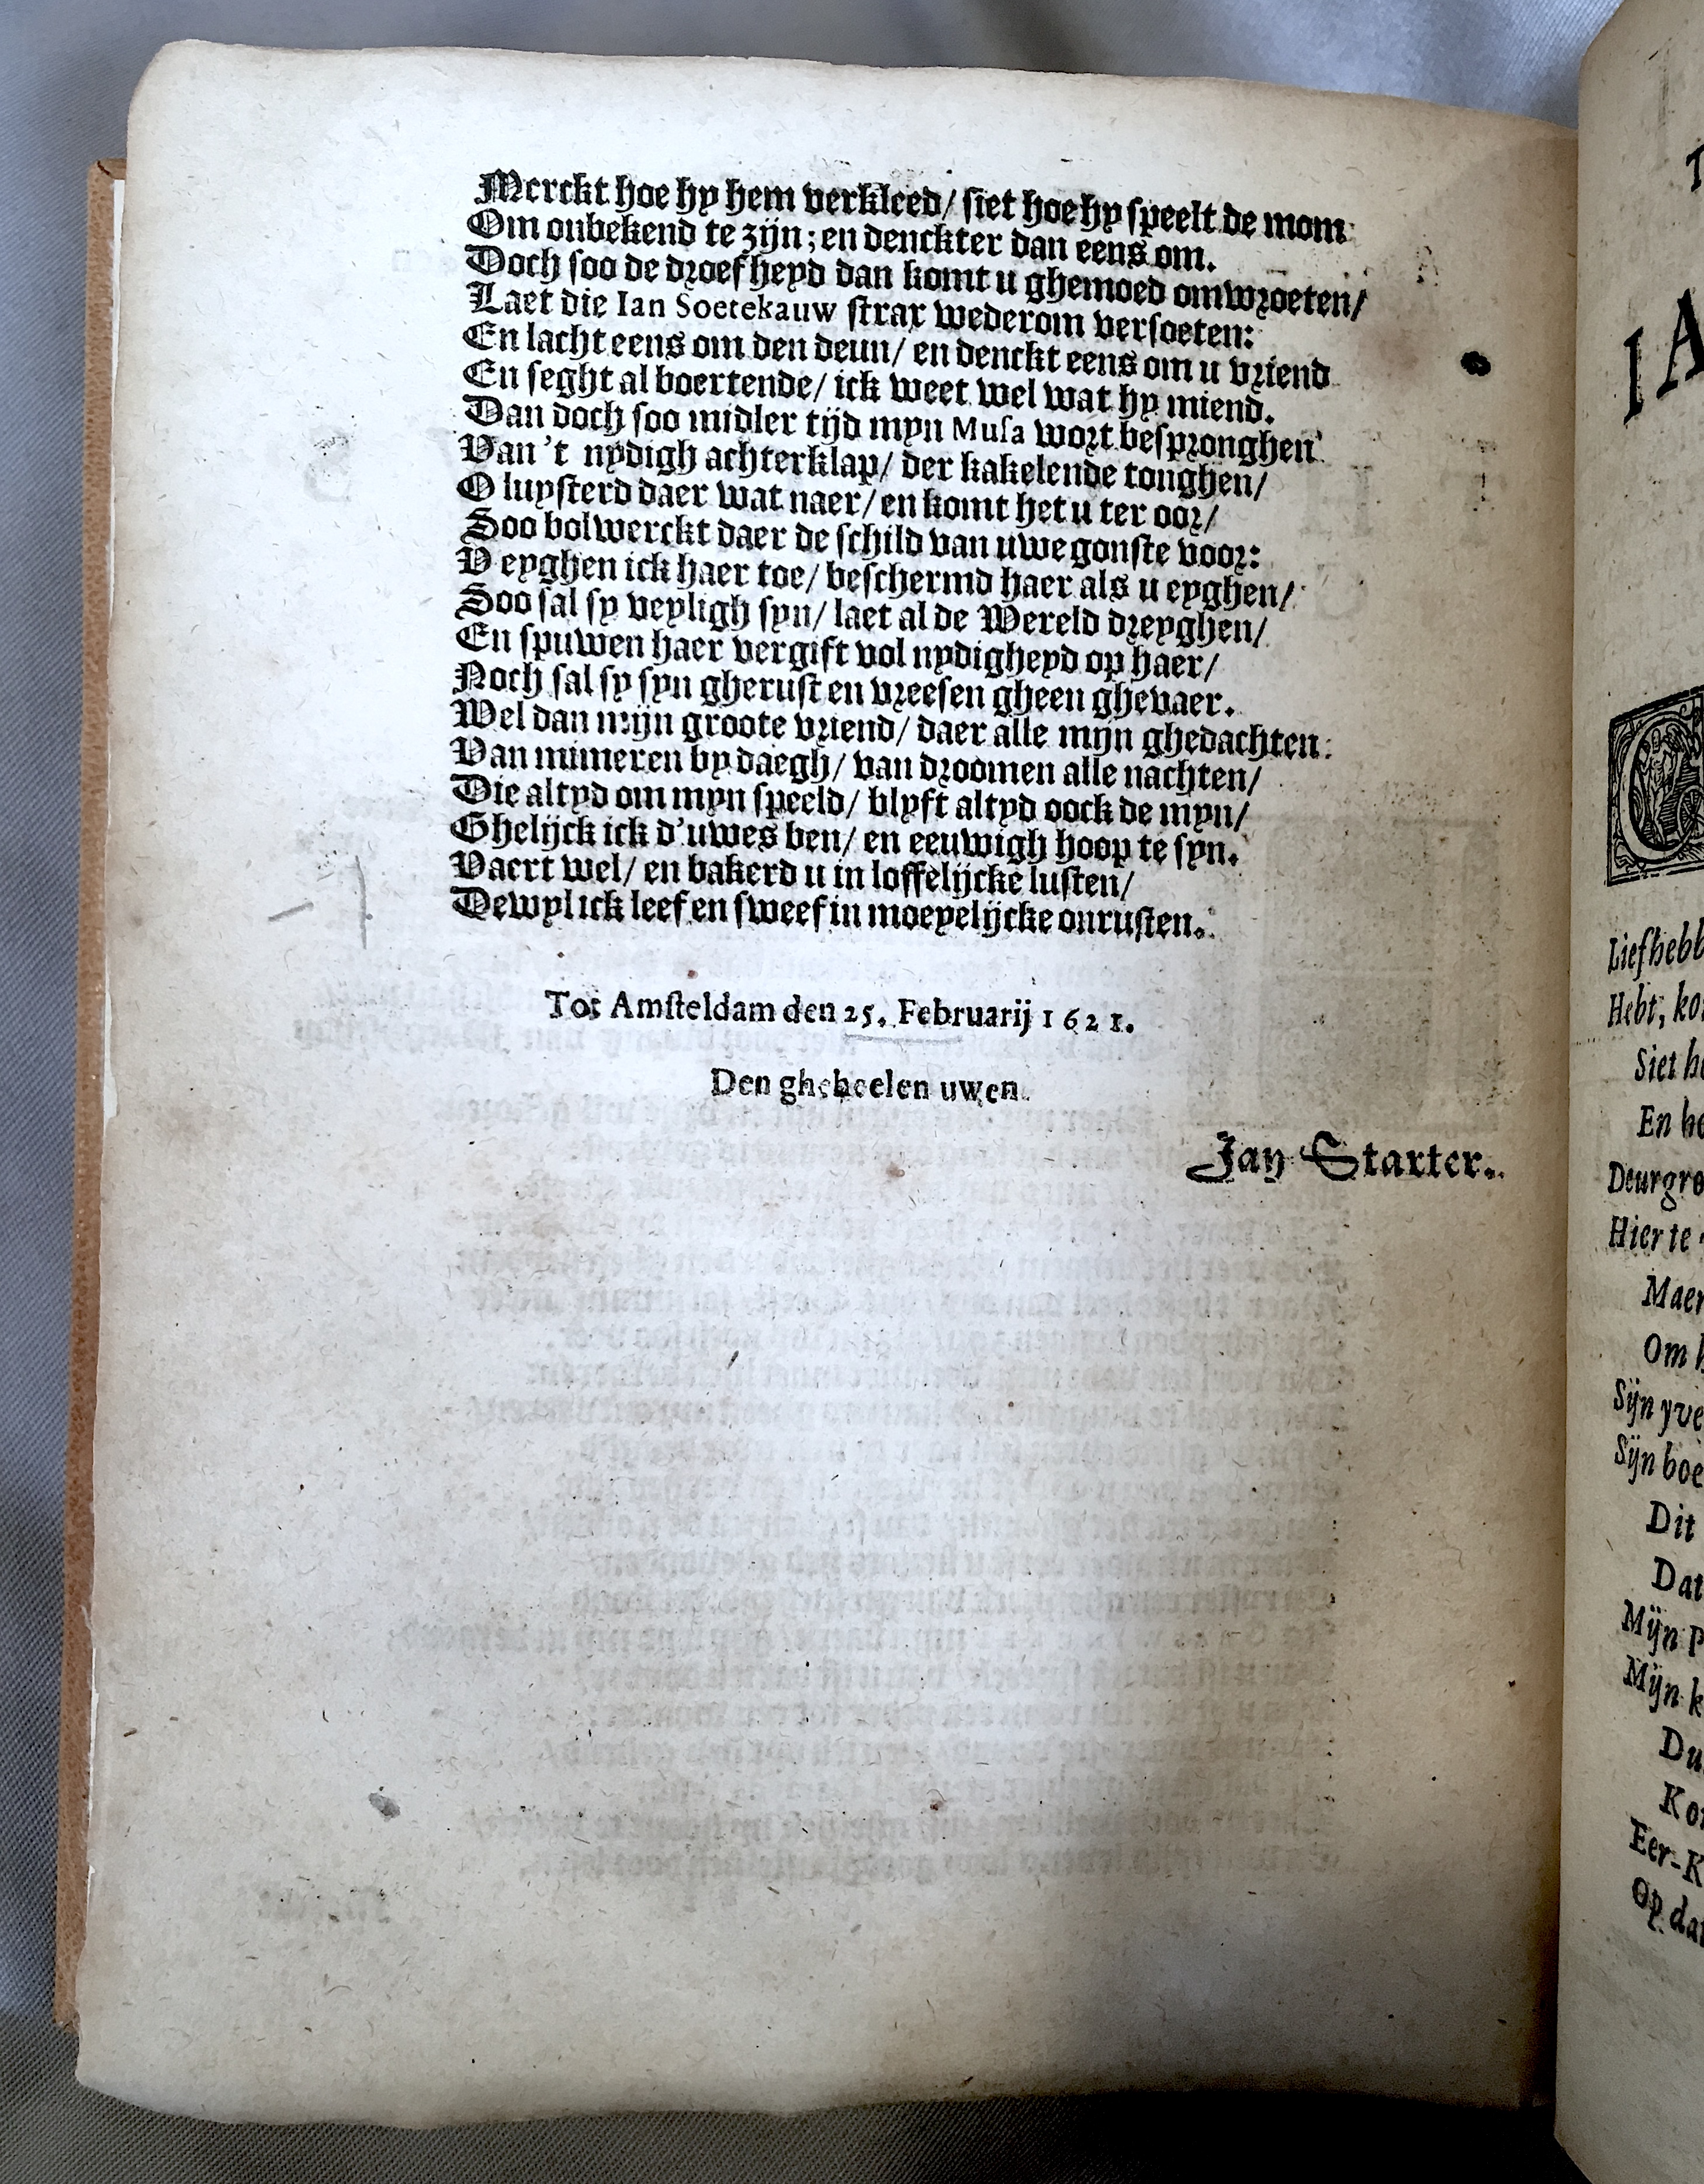 Merckt hoe hy hem verkleed/ siet hoe hy speelt de mom
Om onbekend te zijn; en denckter dan eens om.
Doch soo de droefheyd dan komt u ghemoed omwroeten/
Laet die Ian Soetekauw strax wederom versoeten:
En lacht eens om den deun/ en denckt eens om u vriend
En seght al boertende/ ick weet wel wat hy miend.
Dan doch soo midler tijd myn Musa wort bespronghen
Van 't nydigh achterklap/ der kakelende tonghen/
O luysterd daer wat naer/ en komt het u ter oor/
Soo bolwerckt daer de schild van uwe gonste voor:
V eyghen ick haer toe/ beschermd haer als u eyghen/
Soo sal sy veyligh syn/ laet al de Wereld dreyghen/
En spuwen haer vergift vol nydigheyd op haer/
Noch sal sy syn gherust en vreesen gheen ghevaer.
Wel dan mijn groote vriend/ daer alle mijn ghedachten
Van mimeren by daegh/ van droomen alle nachten/
Die altyd om myn speeld/ blyft altyd oock de myn/
Ghelijck ick d'uwes ben/ en eeuwigh hoop te syn.
Vaert wel/ en bakerd u in loffelijcke lusten/
Dewyl ick leef en sweef in moeyelijcke onrusten.
Tot Amsteldam den 25. Februarij 1621.
Den gheheelen uwen.
Jan Starter.
T
IA
Liefhebb
Hebt, ko
Siet h
En he
Deurgro
Hier te
Maer
Om h
Sijn yve
Sijn boe
Dit
Dat
Mijn P
Mijn k
Du
Ko
Eer-K
Op dat